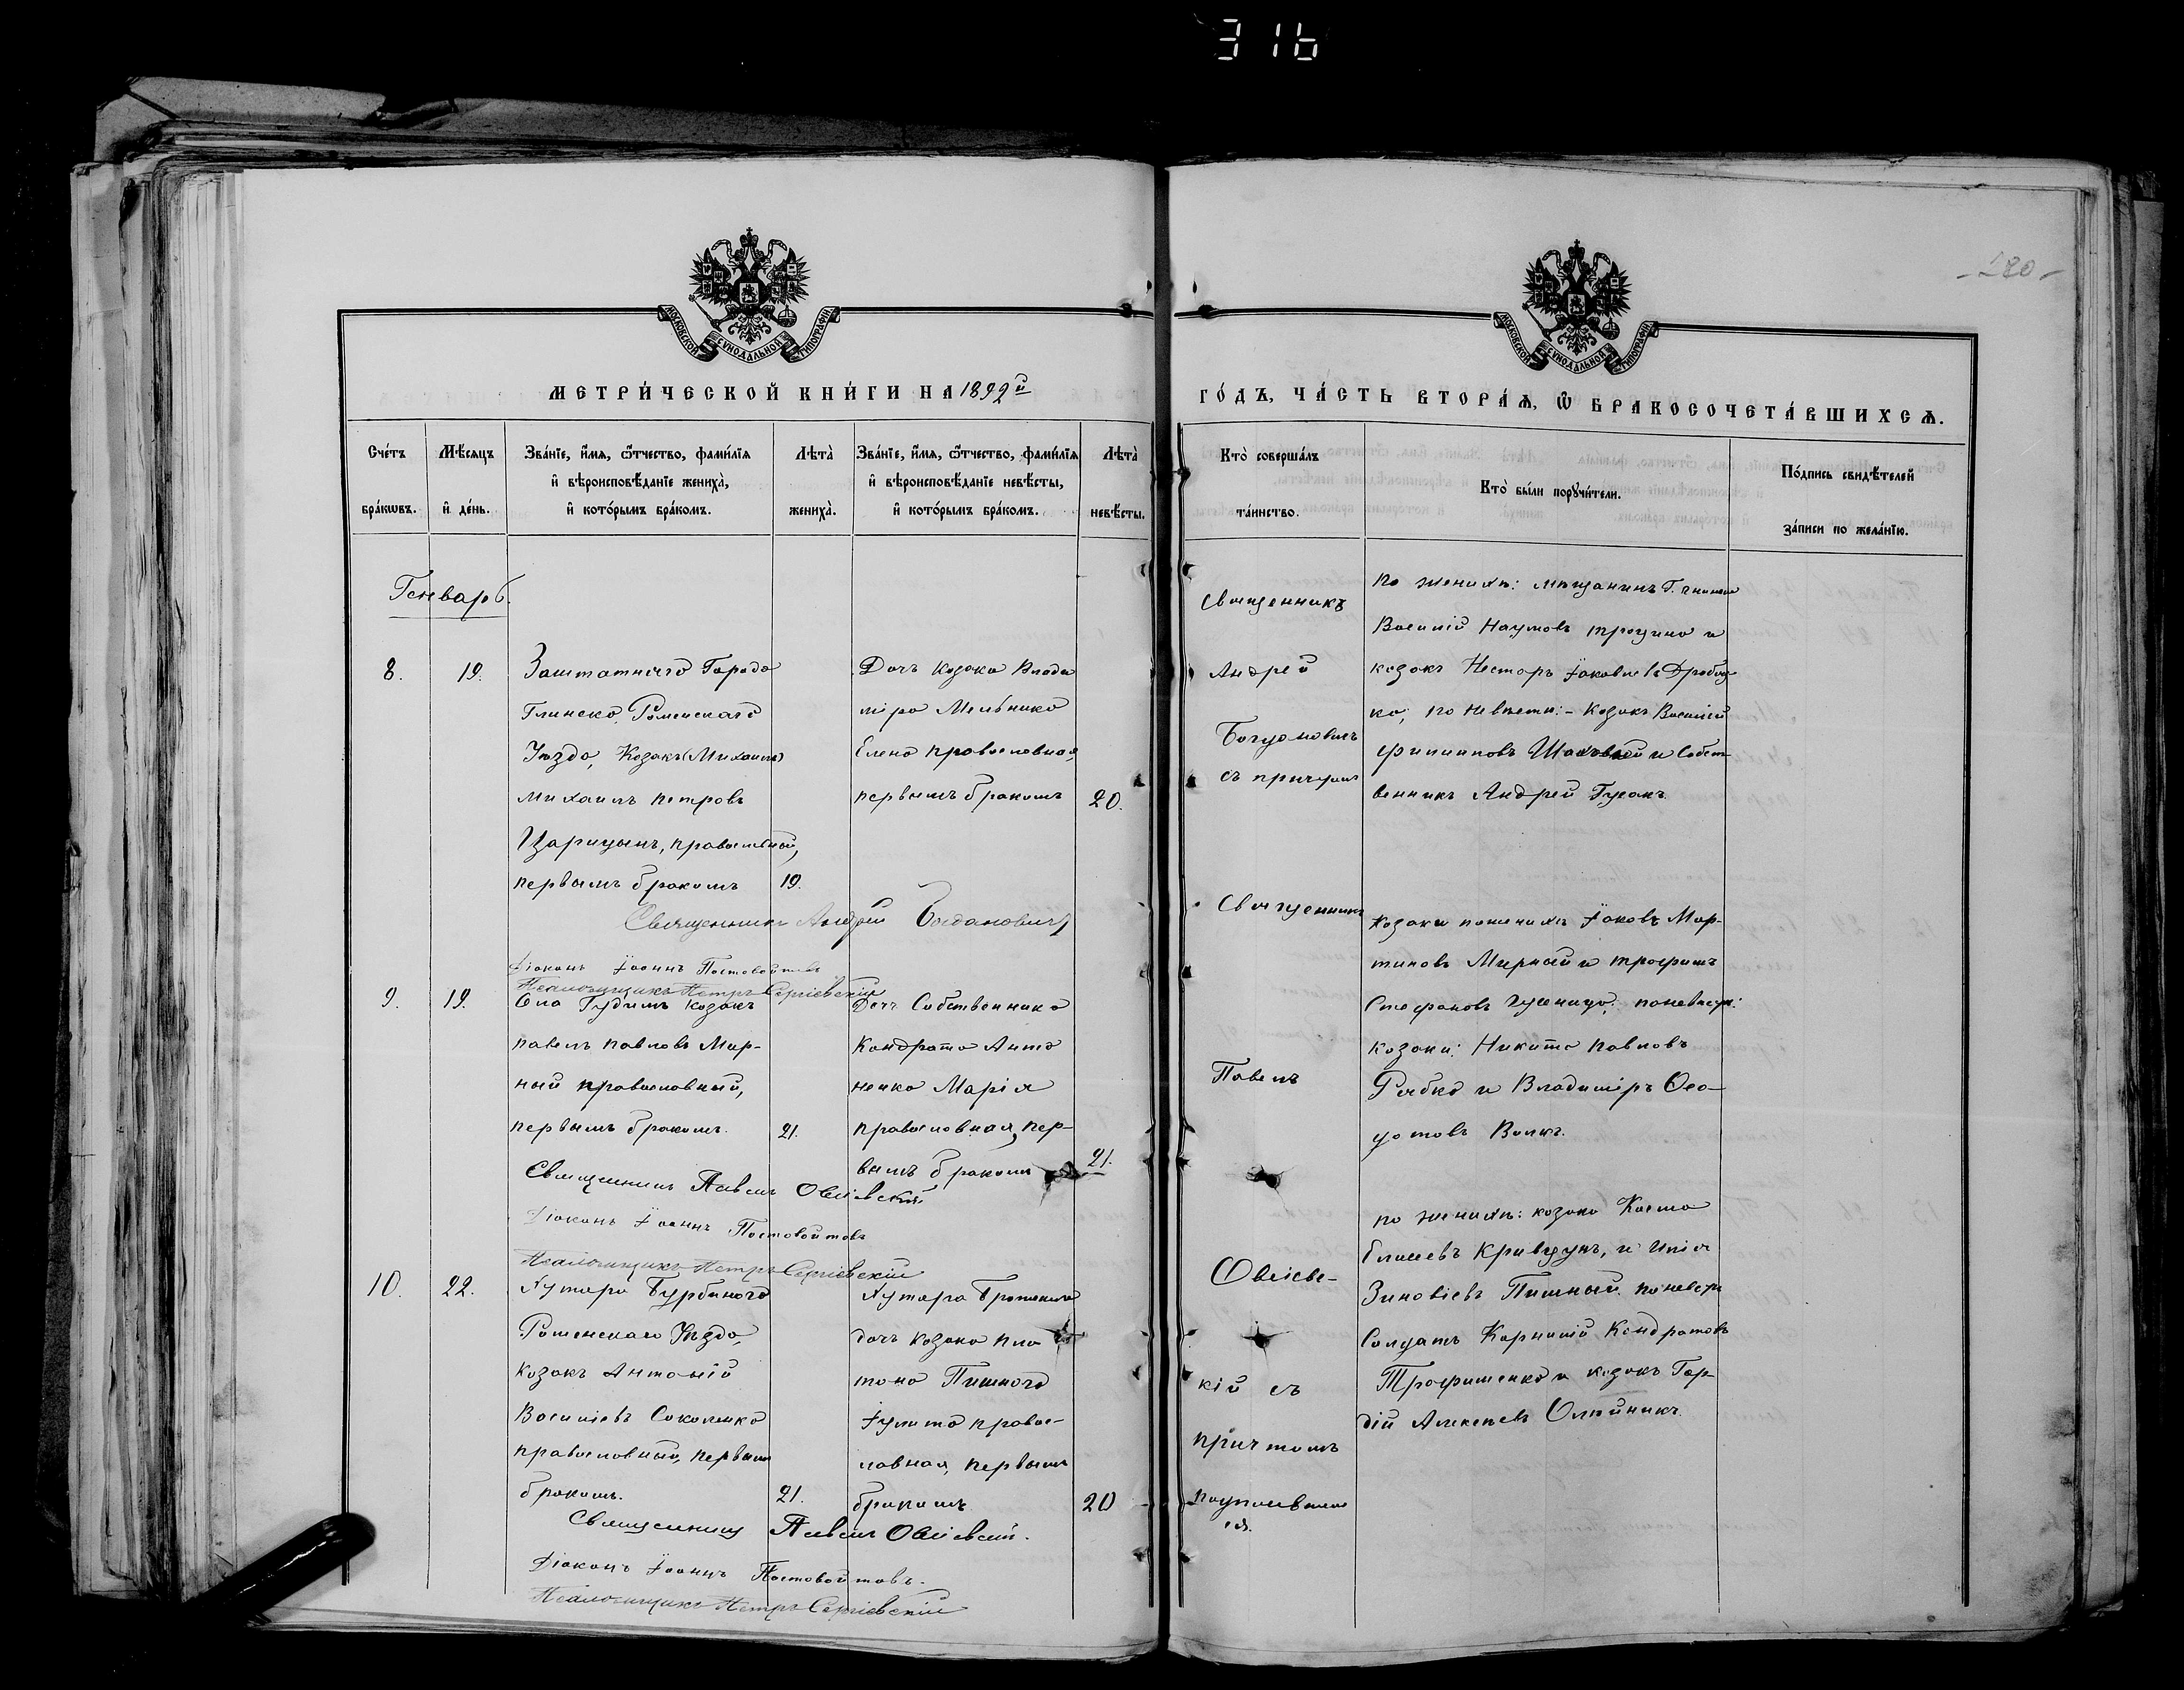 316
180
МОСКОВСКОЙ СѴНОДАЛЬНОЙ ТИПОГРАФІИ
МОСКОВСКОЙ СѴНОДАЛЬНОЙ ТИПОГРАФІИ
МЕТРИ́ЧЕСКОЙ КНИ́ГИ НА 1892й
ГО́ДЪ, ЧА́СТЬ ВТОРА́Ѧ, Ѡ҆ БРАКОСОЧЕТА́ВШИХСѦ.
Сче́тъ бра́кѡвъ.
Мѣ́сѧцъ и҆ де́нь.
Зва́нїе, и҆́мѧ, ѻ҆́тчество, фами́лїѧ
и҆ вѣроисповѣ́данїе жениха̀,
и҆ кото́рымъ бра́комъ.
Лѣта̀ жениха̀.
Зва́нїе, и҆́мѧ, ѻ҆́тчество, фами́лїѧ
и҆ вѣроисповѣ́данїе невѣ́сты,
и҆ кото́рымъ бра́комъ.
Лѣта̀ невѣ́сты.
Кто̀ соверша́лъ та́инство.
Кто̀ бы́ли порꙋчи́тели.
По́дпись свидѣ́телей
за́писи по жела́нїю.
Генварь.
8.
19.
Заштатного Города
Глинска, Роменскаго
Уѣзда, Козакъ (Михаилъ)
Михаилъ Петровъ
Царицынъ, православный,
первымъ бракомъ
19.
Дочь козака Влади
міра Мельника
Елена православная,
первымъ бракомъ
20.
Священникъ
Андрей
Богдановичъ
съ причтомъ
По женихѣ: мѣщанинъ Г.
Василій Наумовъ и
козакъ Несторъ Іаковлевъ
ко; по невѣсте: - Козакъ Василій
Филиповъ и Собст-
венникъ Андрей Гусакъ.
Священникъ Андрей Богдановичъ
Діаконъ Іоаннъ Постовойтовъ
Псаломщикъ Петръ Сергіевскій
9.
19.
Села Гудимъ козакъ
Павелъ Павловъ Мир-
ный православный,
первымъ бракомъ.
21.
Дочь Собственника
Кондрата Анто
ненка Марія
православная, пер-
вымъ бракомъ
21.
Священникъ
Павелъ
Козаки по женихѣ Іаковъ Мар-
тиновъ Мирный и Трофимъ
Стефановъ по невѣсте:
козаки: Никита Павловъ
Рябко и Владиміръ Ѳео-
дотовъ Волкъ.
Священникъ Павелъ Овсіевскій
Діаконъ Іоаннъ Постовойтовъ
Псаломщикъ Петръ Сергіевскій
10.
22.
Хутора Бурбиного
Роменскаго Уѣзда,
козакъ Антоній
Василіевъ Соколенко
православный, первымъ
бракомъ.
21.
Хутора
дочь козака Пла
тона Пишного
Іулита правос-
лавная, первымъ
бракомъ
20
Овсіевс-
кій съ
причтомъ
По женихѣ: козаки Косма
Елисеевъ Кривцунъ, и Илія
Зиновіевъ Пишный. по невѣсте
Солдатъ Корнилій Кондратовъ
Трофименко и козакъ Гор-
дій Алексѣевъ Олѣйникъ.
Священникъ Павелъ Овсіевскій.
Діаконъ Іоаннъ Постовойтовъ.
Псаломщикъ Петръ Сергіевскій